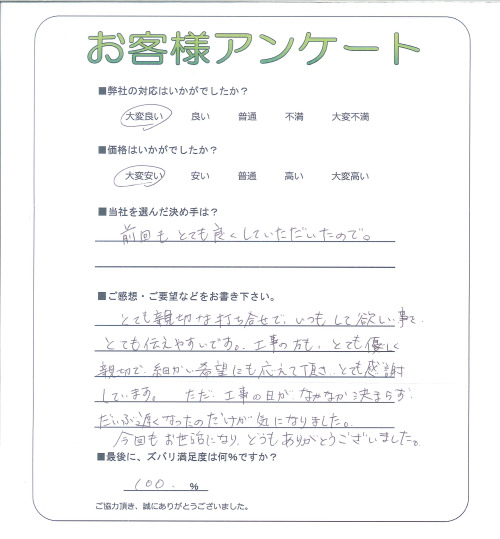 お客様アンケート
■弊社の対応はいかがでしたか？
大変良い 良い 普通 不満 大変不満
■価格はいかがでしたか？
大変安い 安い 普通 高い 大変高い
■当社を選んだ決め手は？
前回もとても良くしていただいたので。
■ご感想・ご要望などをお書き下さい。
とても親切な打ち合せで、いつも、して欲しい事を、
とても伝えやすいです。工事の方も、とても優しく
親切で、細かい希望にも応えて頂き、とても感謝
しています。 ただ、工事の日がなかなか決まらず
だいぶ遅くなったのだけが気になりました。
今回もお世話になり、どうもありがとうございました。
■最後に、ズバリ満足度は何%ですか？
100. %
ご協力頂き、誠にありがとうございました。